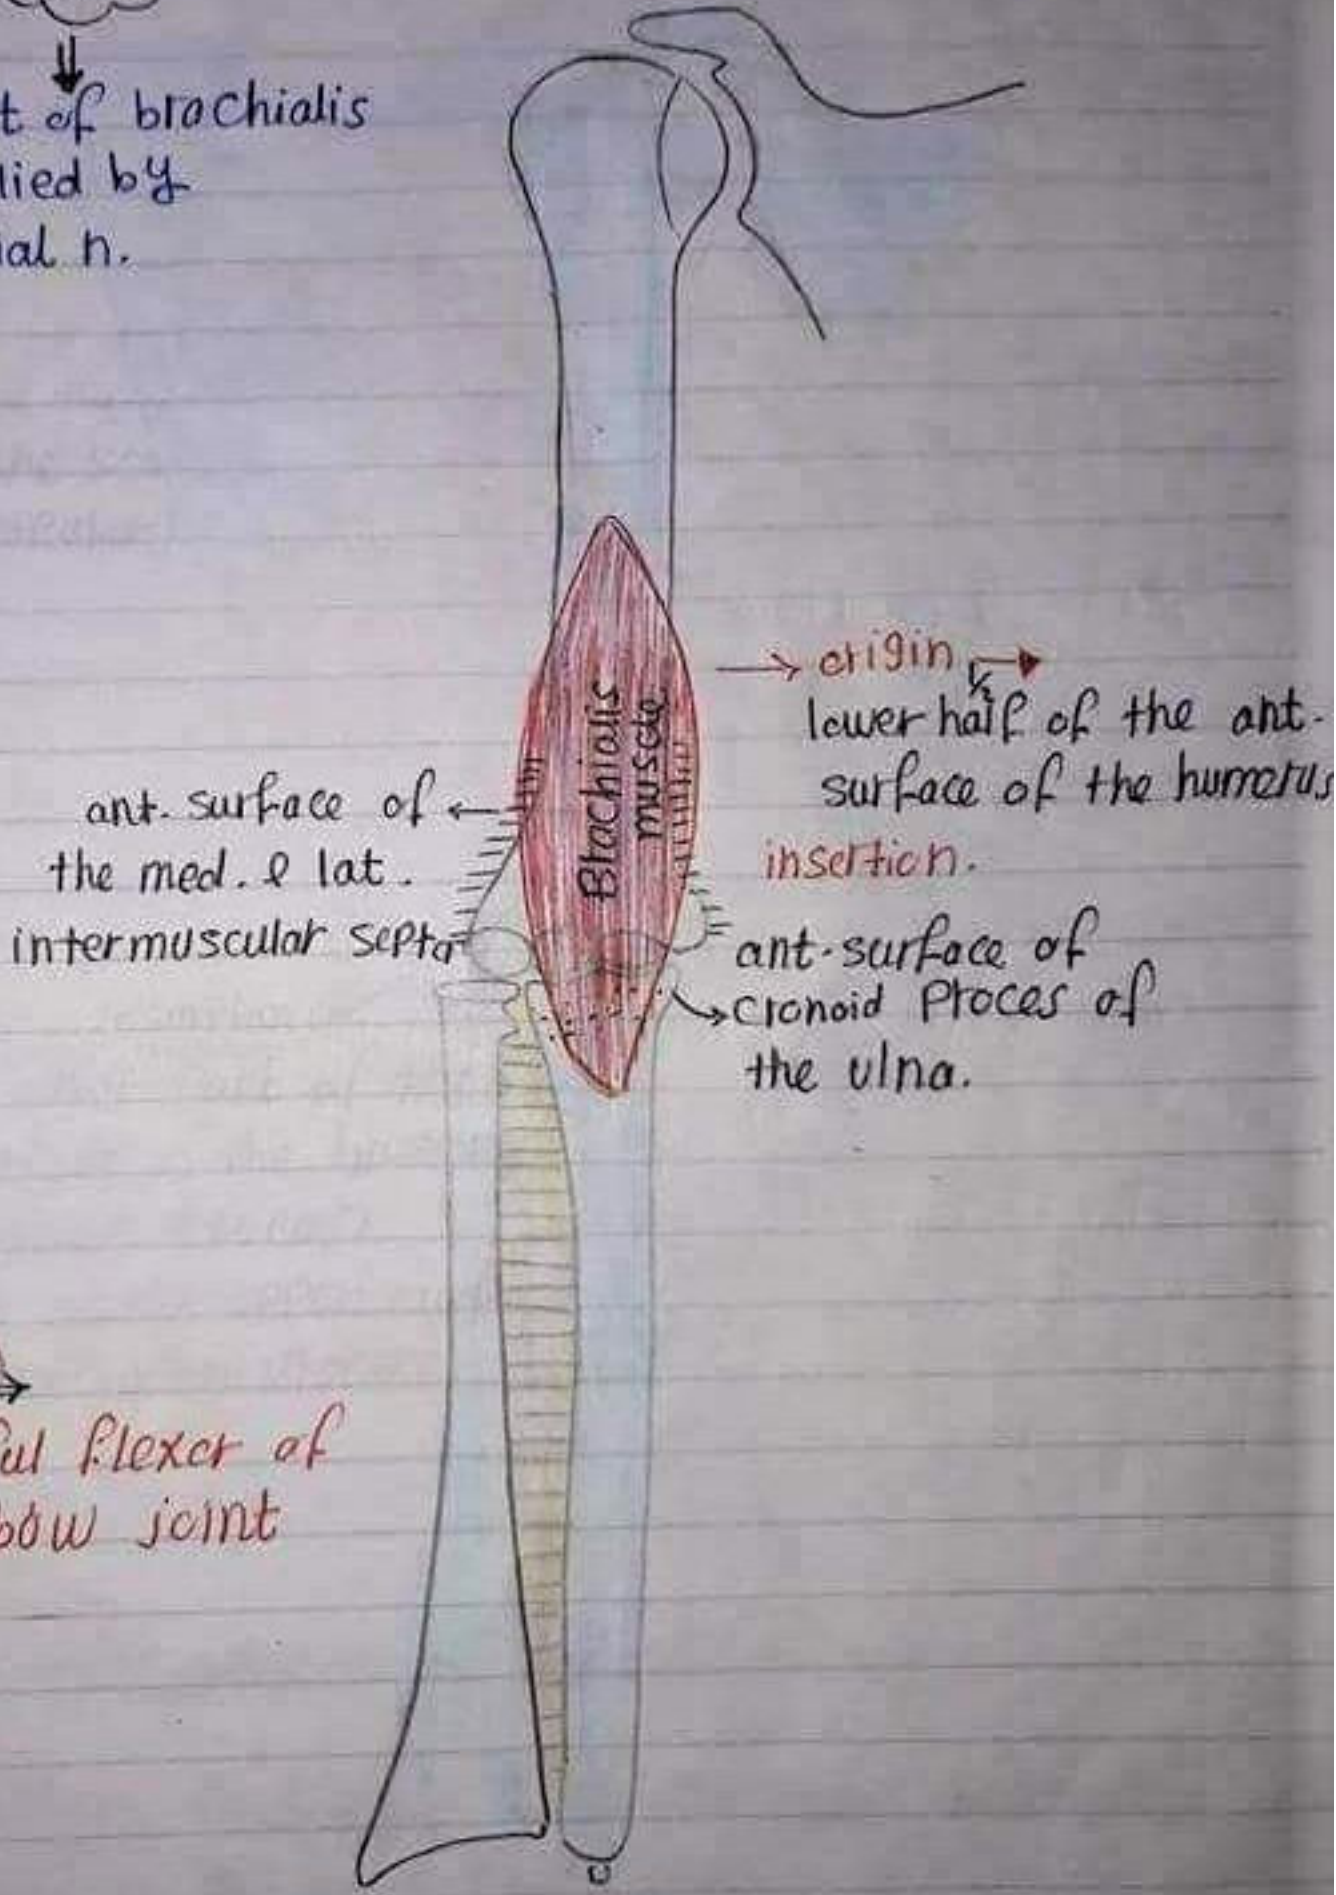 t of brachialis
lied by
ial n.
Brachialis
muscle
origin
1/2
lower half of the ant.
surface of the humerus
ant. surface of
the med. & lat.
intermuscular septa
insertion.
ant. surface of
Cronoid Proces of
the ulna.
ful flexor of
bow joint